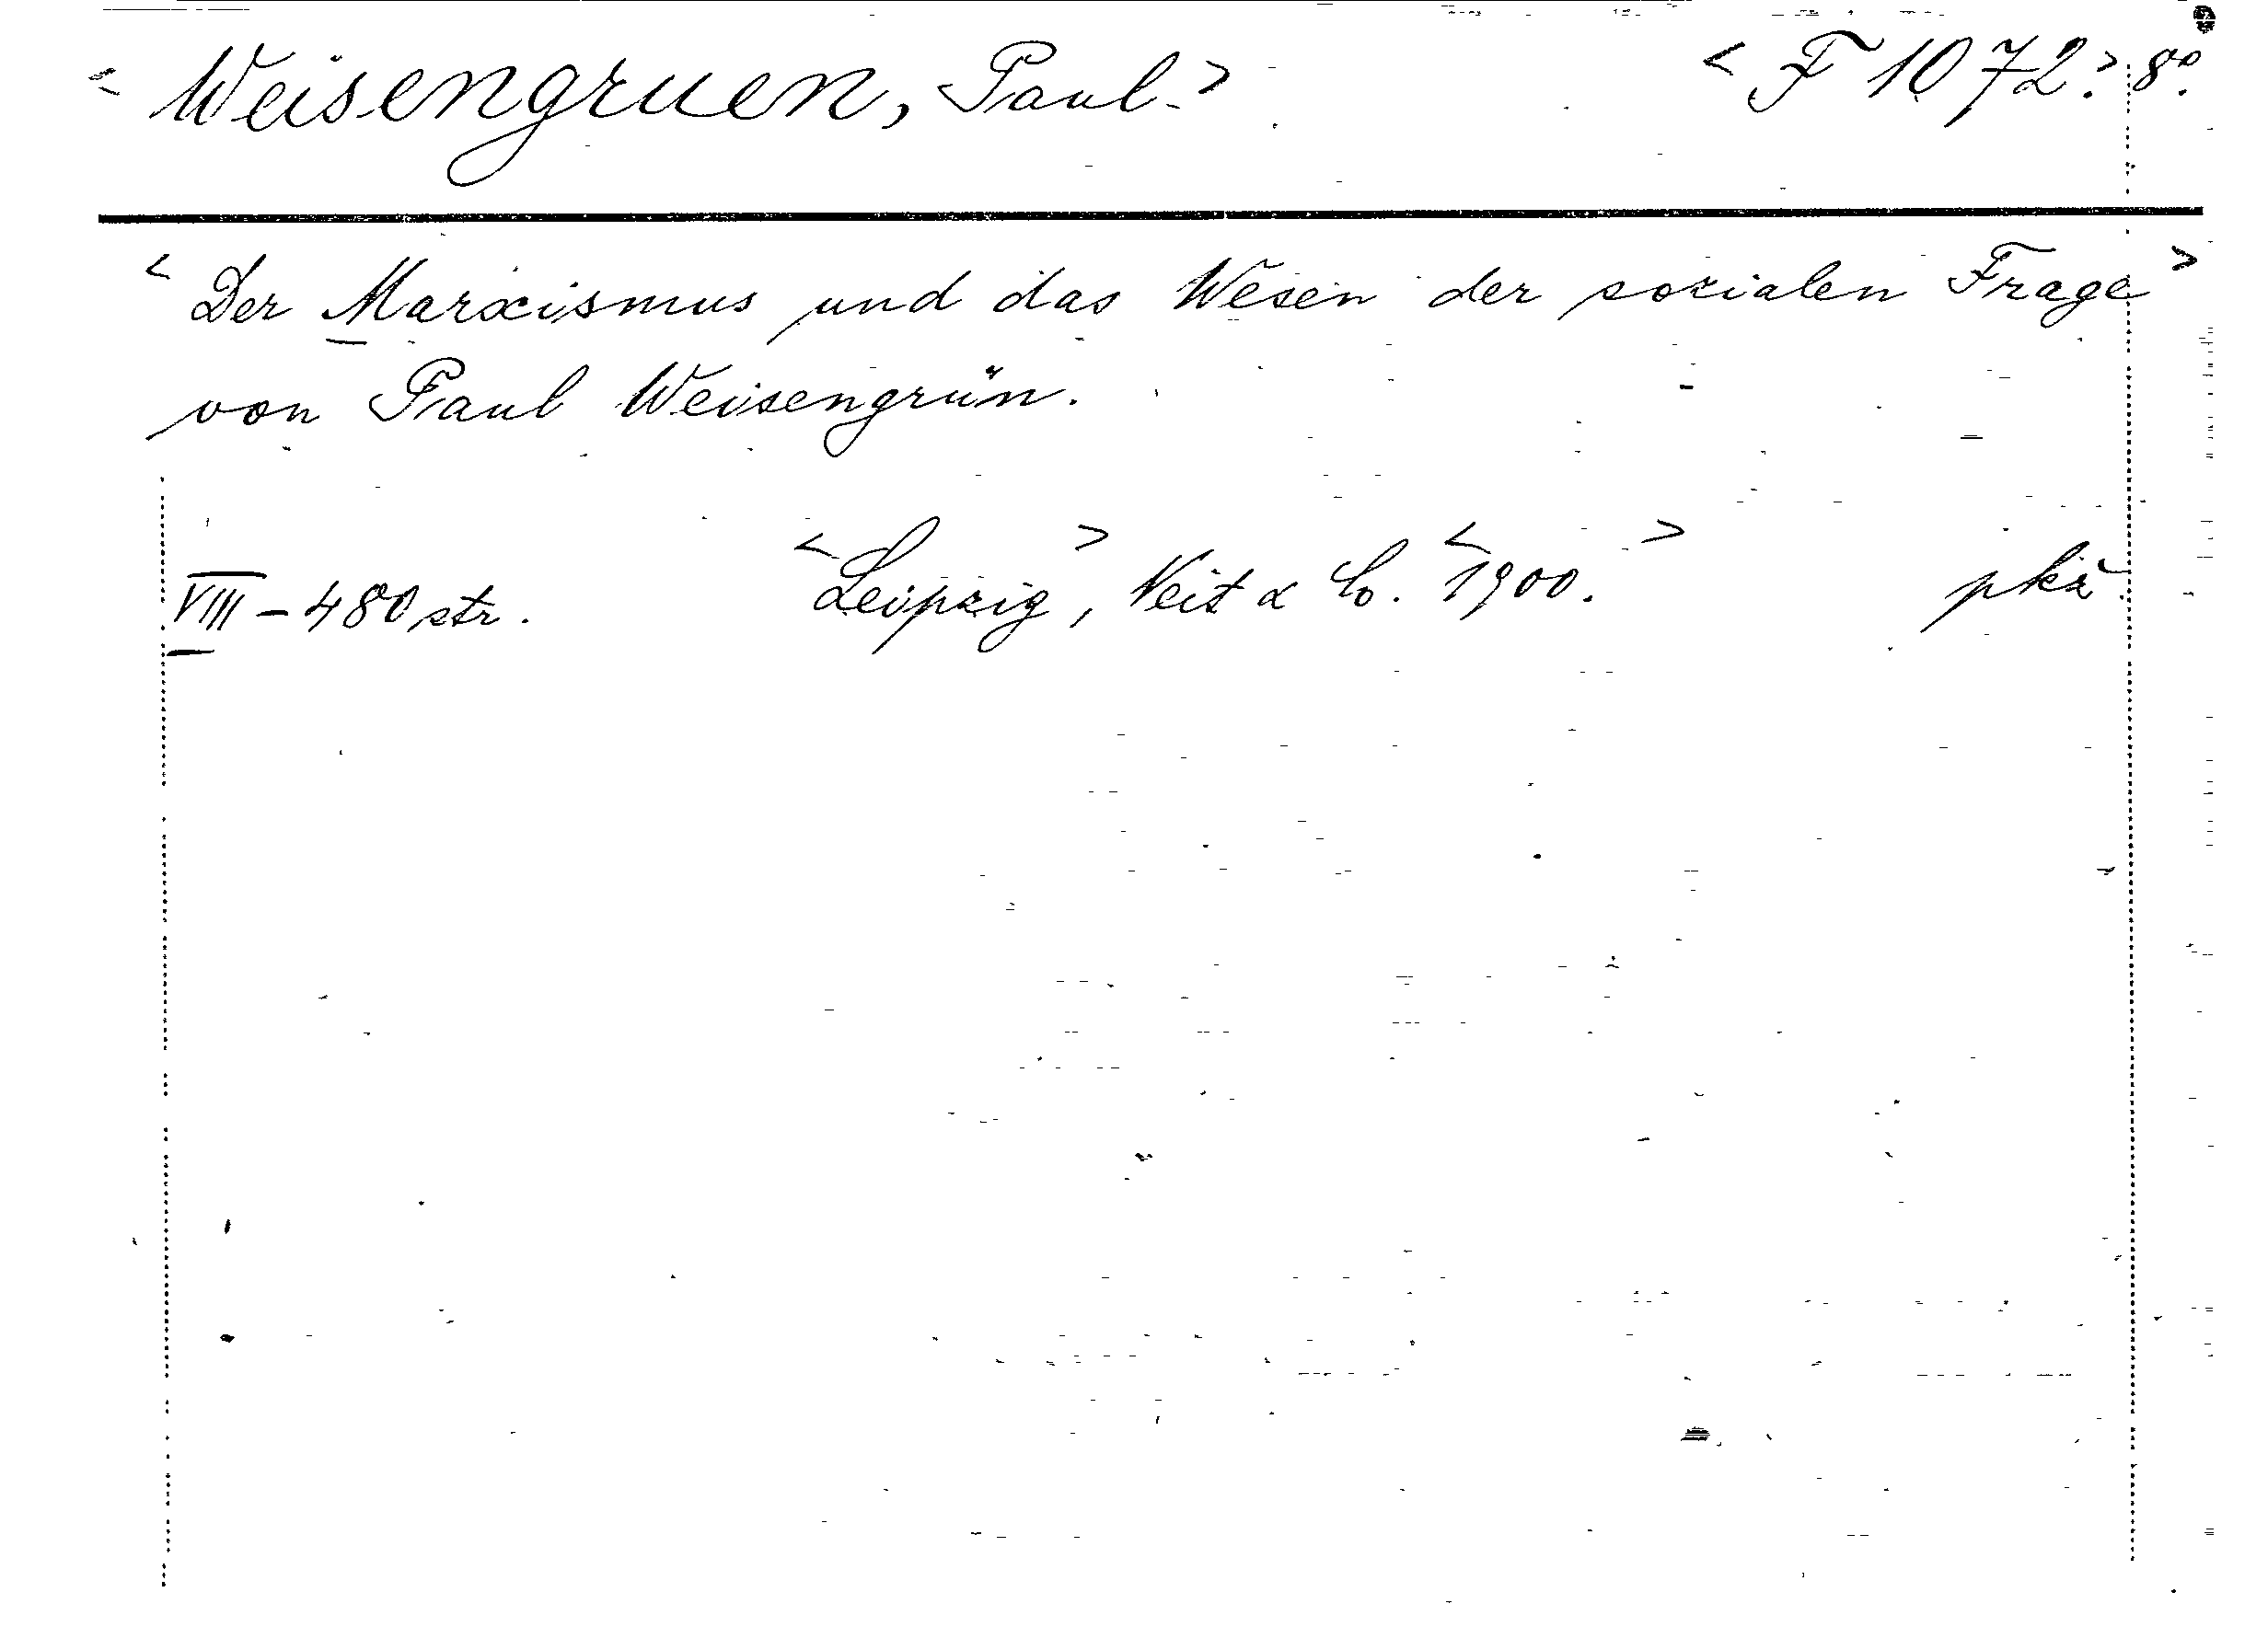 < Weisengruen, Paul. > < F 1072. > 8°.
< Der Marxismus und das Wesen der sozialen Frage >
von Paul Weisengrün.
VIII – 480 str. < Leipzig >, Veit & Co. < 1900. > pkž